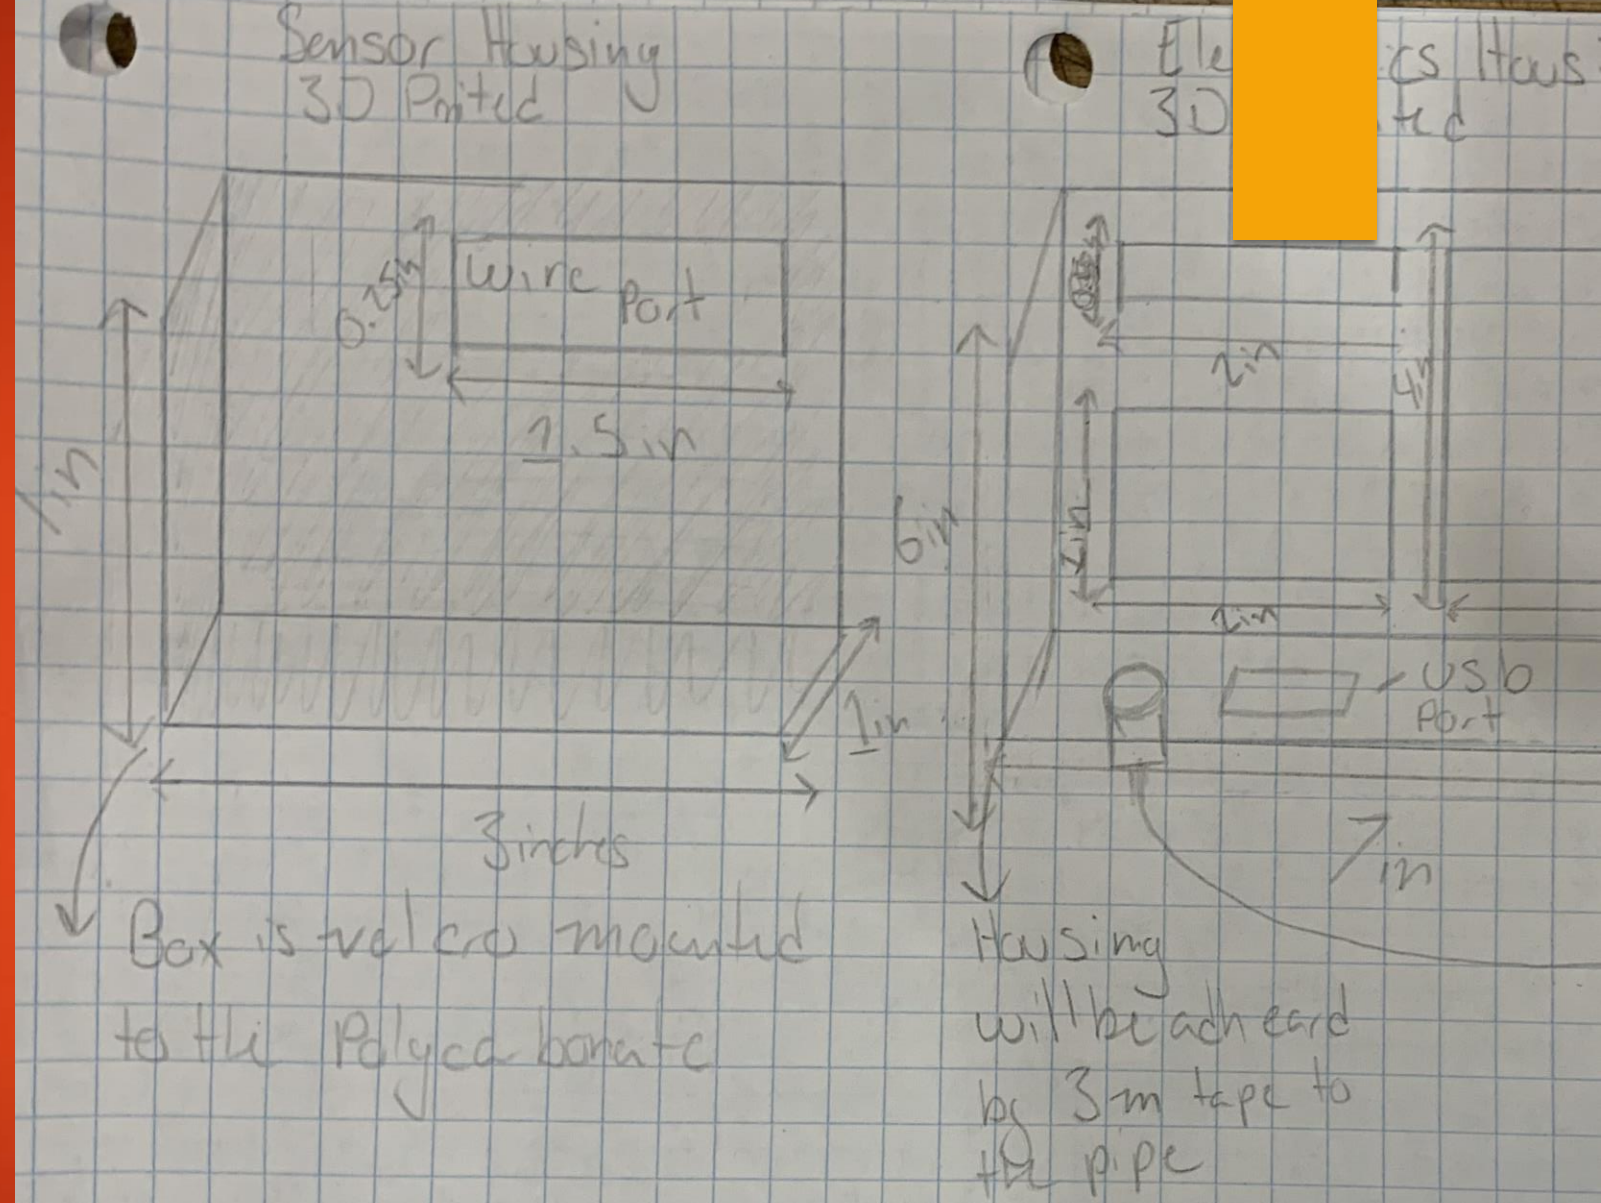 Sensor Housing
3D Pnited
Wire Port
0.25in
1.5in
1in
1in
3 inches
Box is velcro mounted
to the Polycarbonate
Ele ics Hous
3D ted
2in
4in
6in
1in
2in
USb
Port
in
Housing
will be adheard
by 3m tape to
the pipe